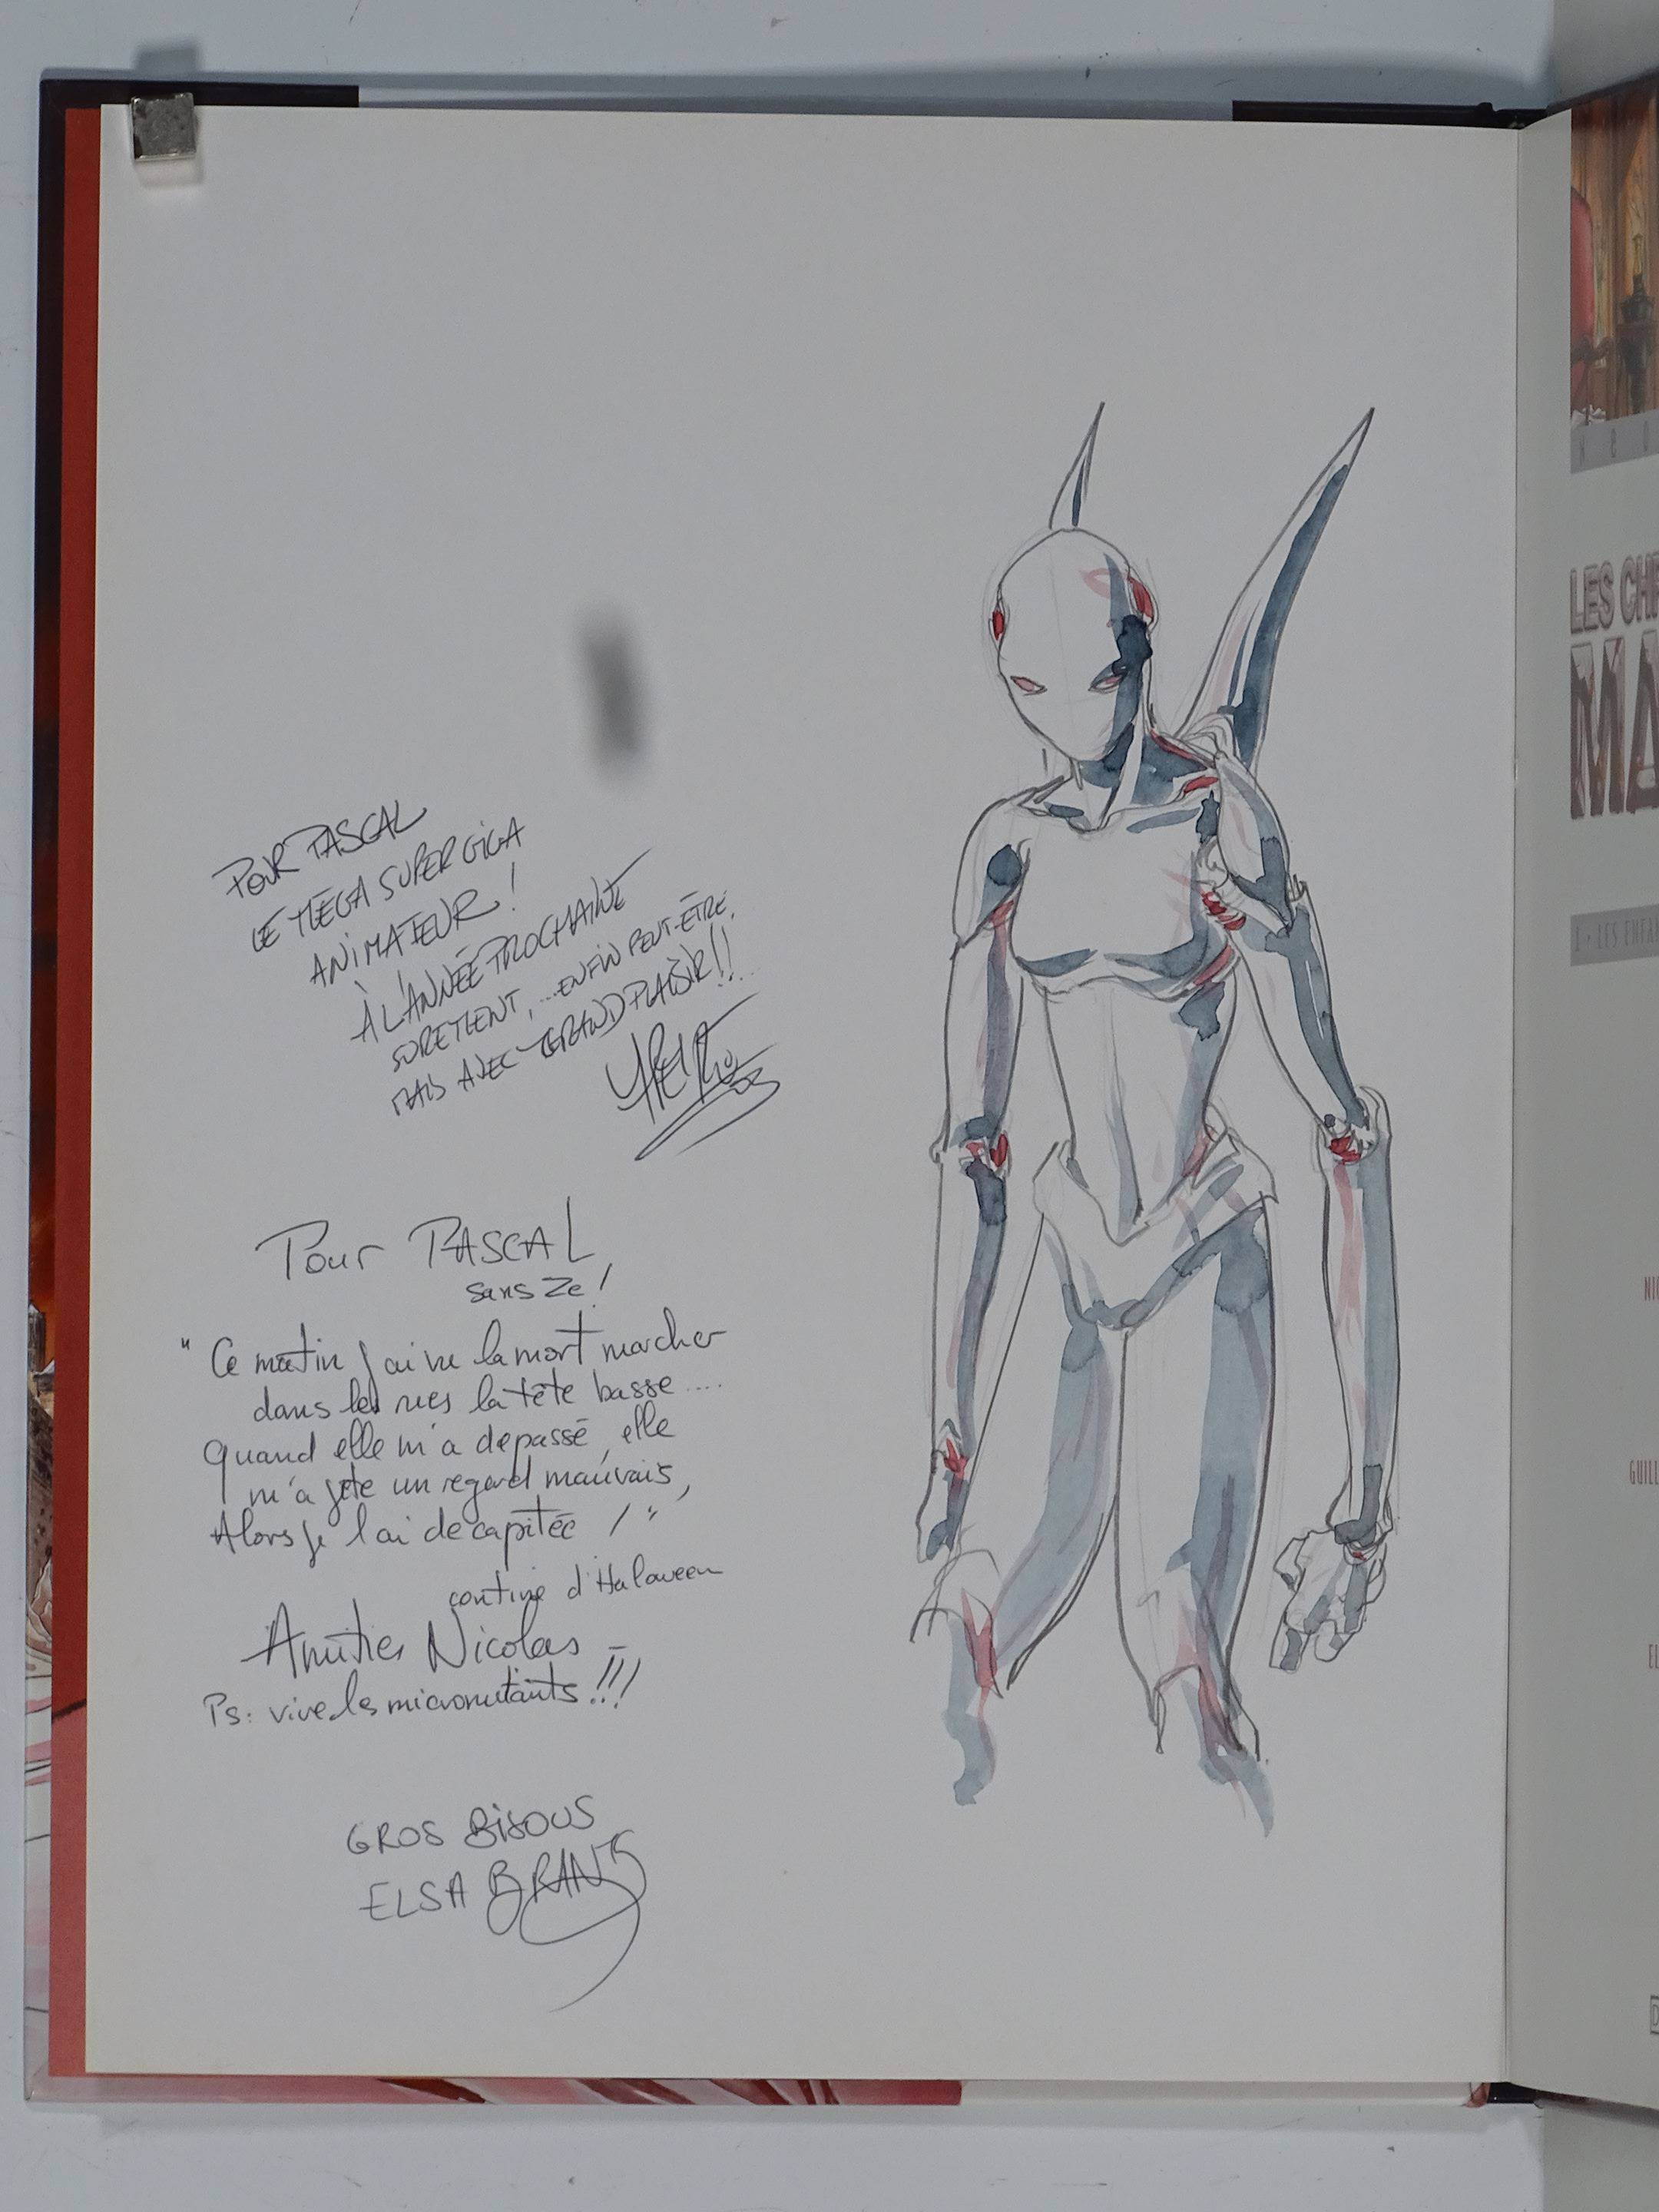 POUR PASCAL
LE MEGA SUPER GIGA
ANIMATEUR !
À L'ANNÉE PROCHAINE
SUREMENT, ...ENFIN PEUT-ÊTRE,
MAIS AVEC GRAND PLAISIR !! ...
03
Pour PASCAL
sans Ze !
" Ce matin j'ai vu la mort marcher
dans les rues la tête basse ....
Quand elle m'a depassé, elle
m'a jeté un regard mauvais,
Alors je l'ai decapitée ! "
contine d'Haloween
Amitiés Nicolas
Ps: vive les micromutants !!!
GROS BISOUS
ELSA BRANTS
NEO
LES CH
MA
1 • LES ENFA
NIC
GUILL
EL
D